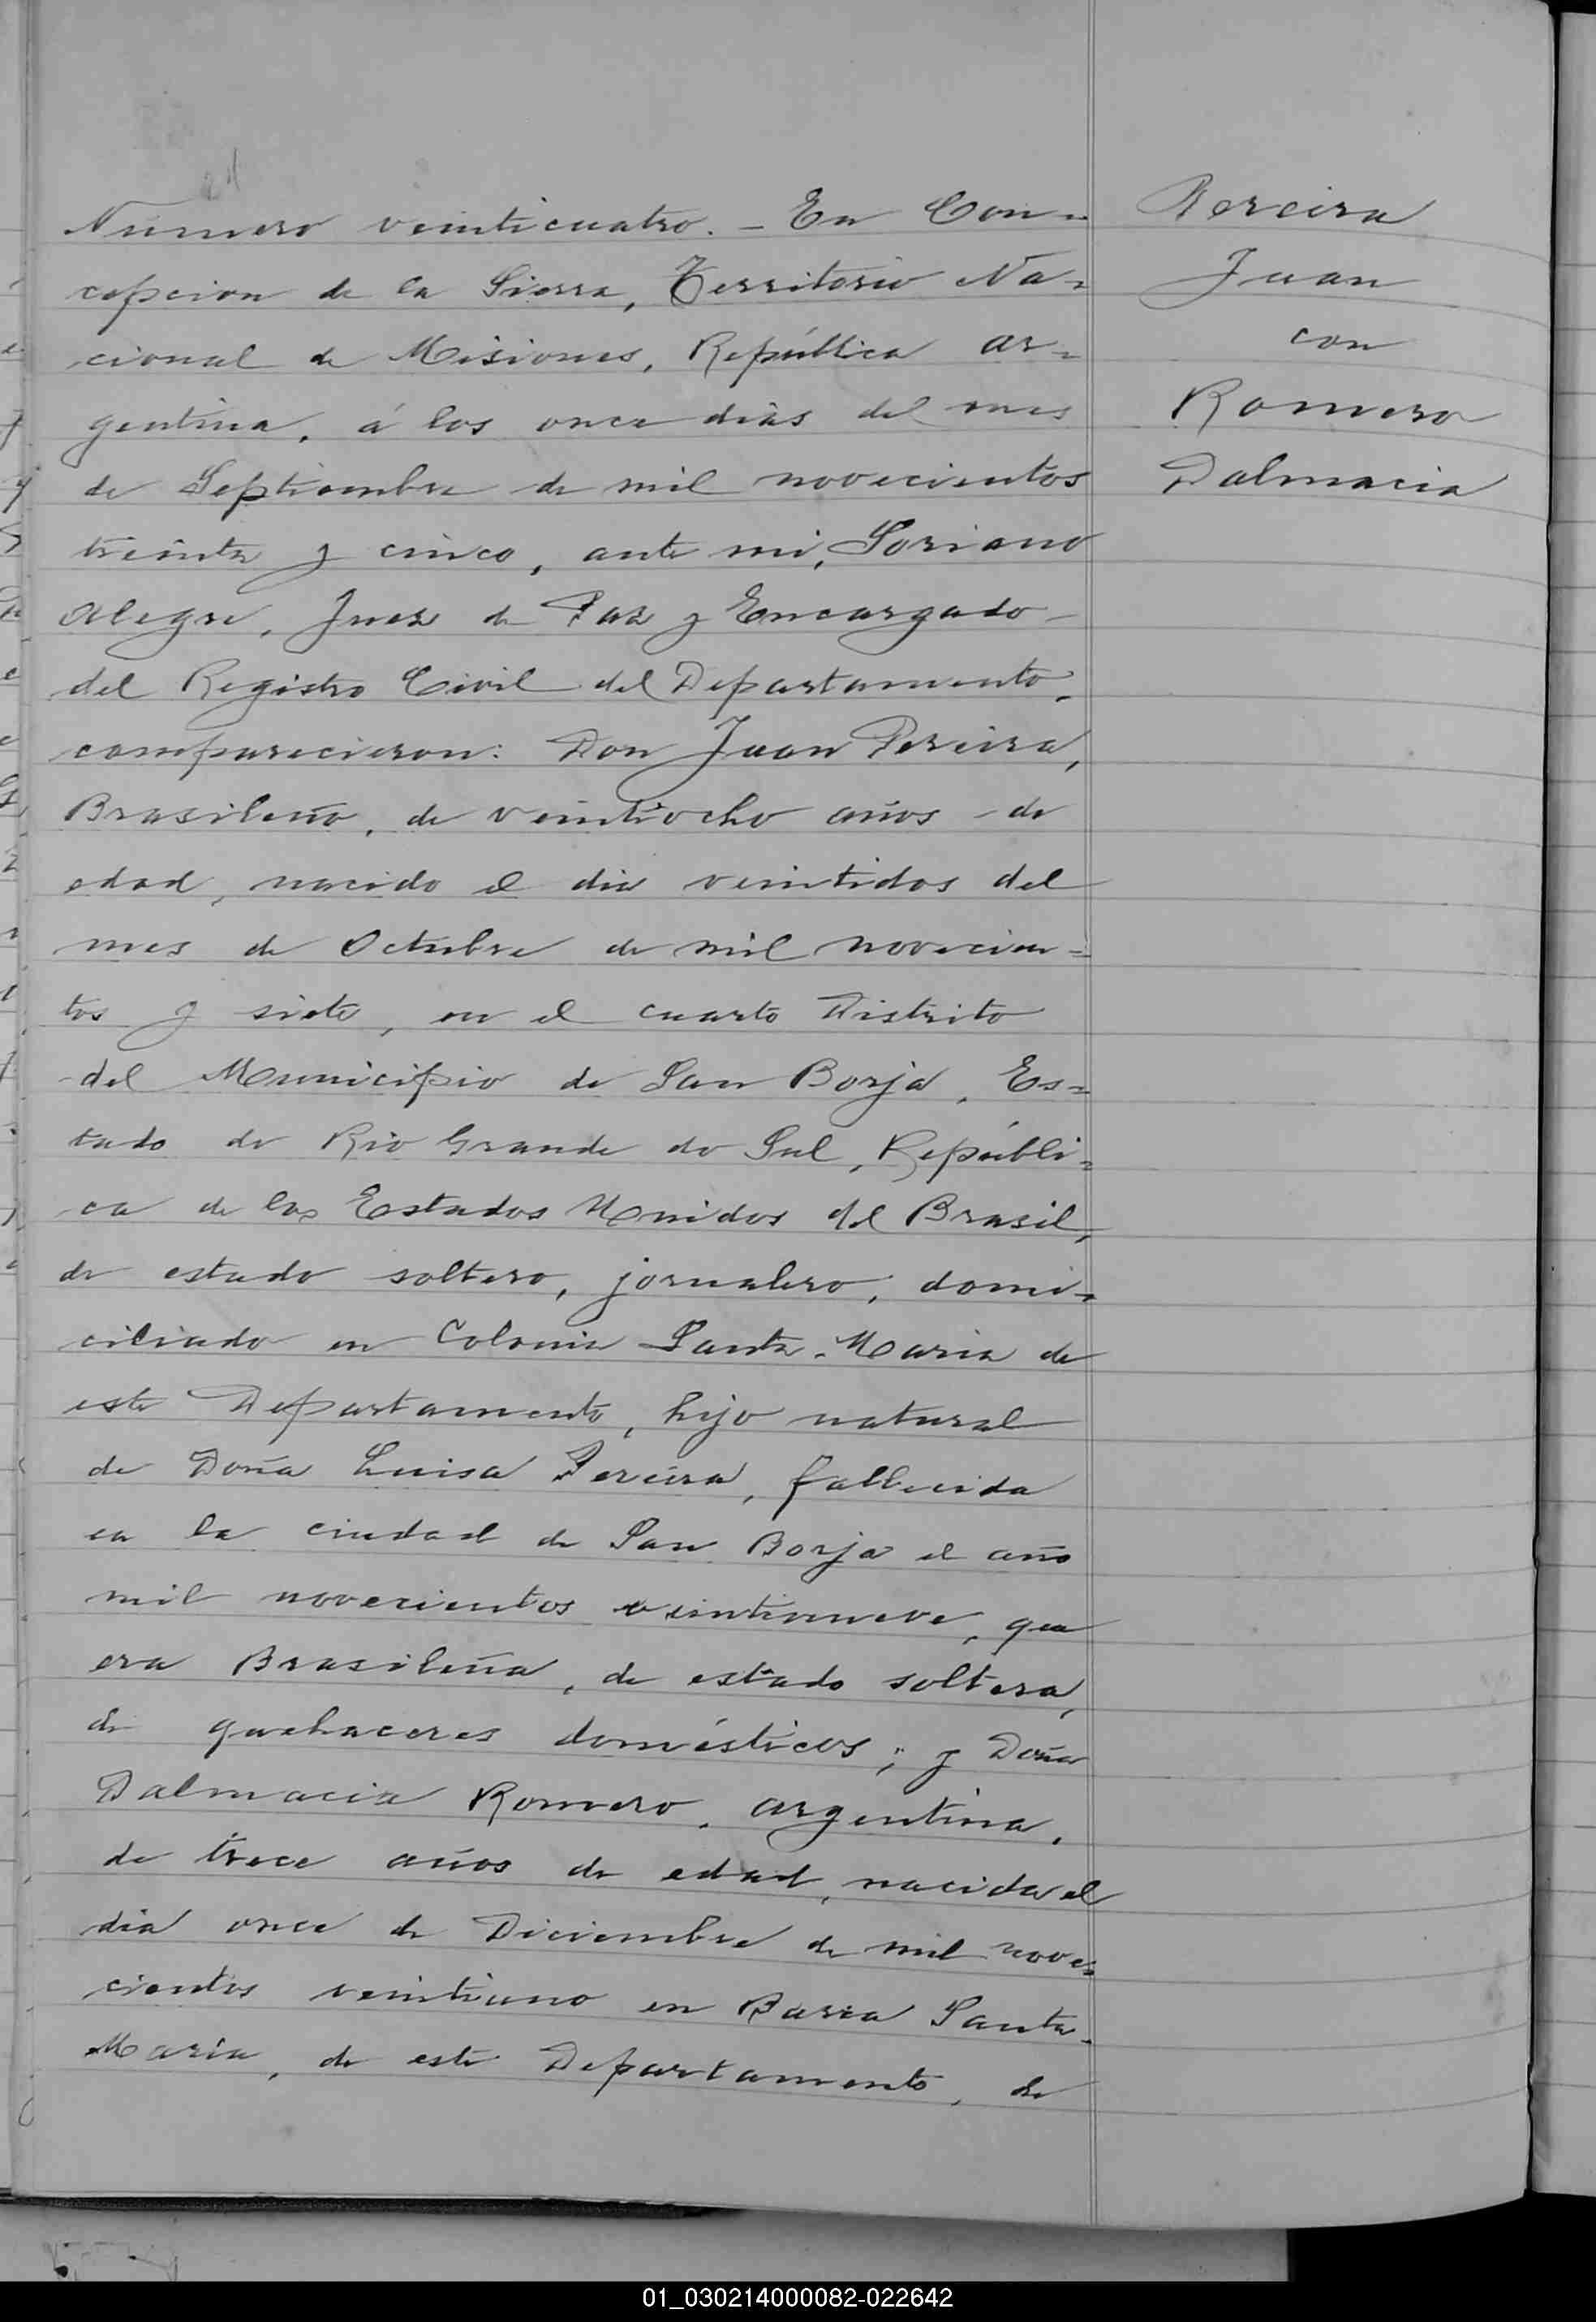 24
Número veinticuatro. - En Con=
cepcion de la Sierra, Territorio Na=
cional de Misiones, República Ar=
gentina, á los once dias del mes
de Septiembre de mil novecientos
treinta y cinco, ante mi, Soriano
Alegre, Juez de Paz y Encargado
del Registro Civil del Departamento,
comparecieron: Don Juan Pereira,
Brasileño, de veintiocho años de
edad, nacido el dia veintidos del
mes de Octubre de mil novecien=
tos y siete, en el cuarto Distrito
del Municipio de San Borja, Es=
tado do Rio Grande do Sul, Repúbli=
ca de los Estados Unidos del Brasil,
de estado soltero, jornalero, domi=
ciliado en Colonia Santa Maria de
este Departamento, hijo natural
de Doña Luisa Pereira, fallecida
en la ciudad de San Borja el año
mil novecientos veintinueve, que
era Brasileña, de estado soltera,
de quehaceres domésticos; y Doña
Dalmacia Romero, argentina,
de trece años de edad, nacida el
dia once de Diciembre de mil nove=
cientos veintiuno en Barra Santa
Maria, de este Departamento, de
Pereira
Juan
con
Romero
Dalmacia
01_030214000082-022642